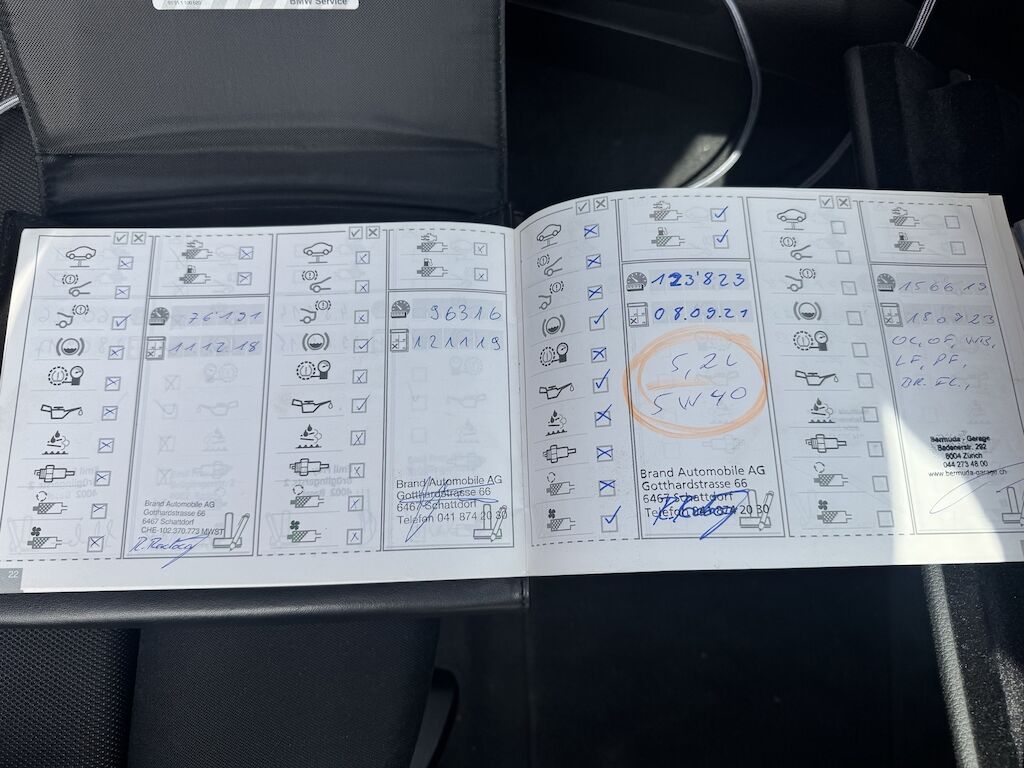 BMW Service
76191
11 12 18
Brand Automobile AG
Gotthardstrasse 66
6467 Schattdorf
CHE-102.370.773 MWST
22
96316
12 11 19
Brand Automobile AG
Gotthardstrasse 66
6467 Schattdorf
Telefon 041 874 20 30
123'823
08.09.21
5,2L
5W40
Brand Automobile AG
Gotthardstrasse 66
6467 Schattdorf
Telefon 041 874 20 30
15661
18 08 23
OC, OF,
LF, PF,
BR. FL.,
Bermuda - Garage
Badenerstr. 292
8004 Zürich
044 273 48 00
www.bermuda-garage.ch